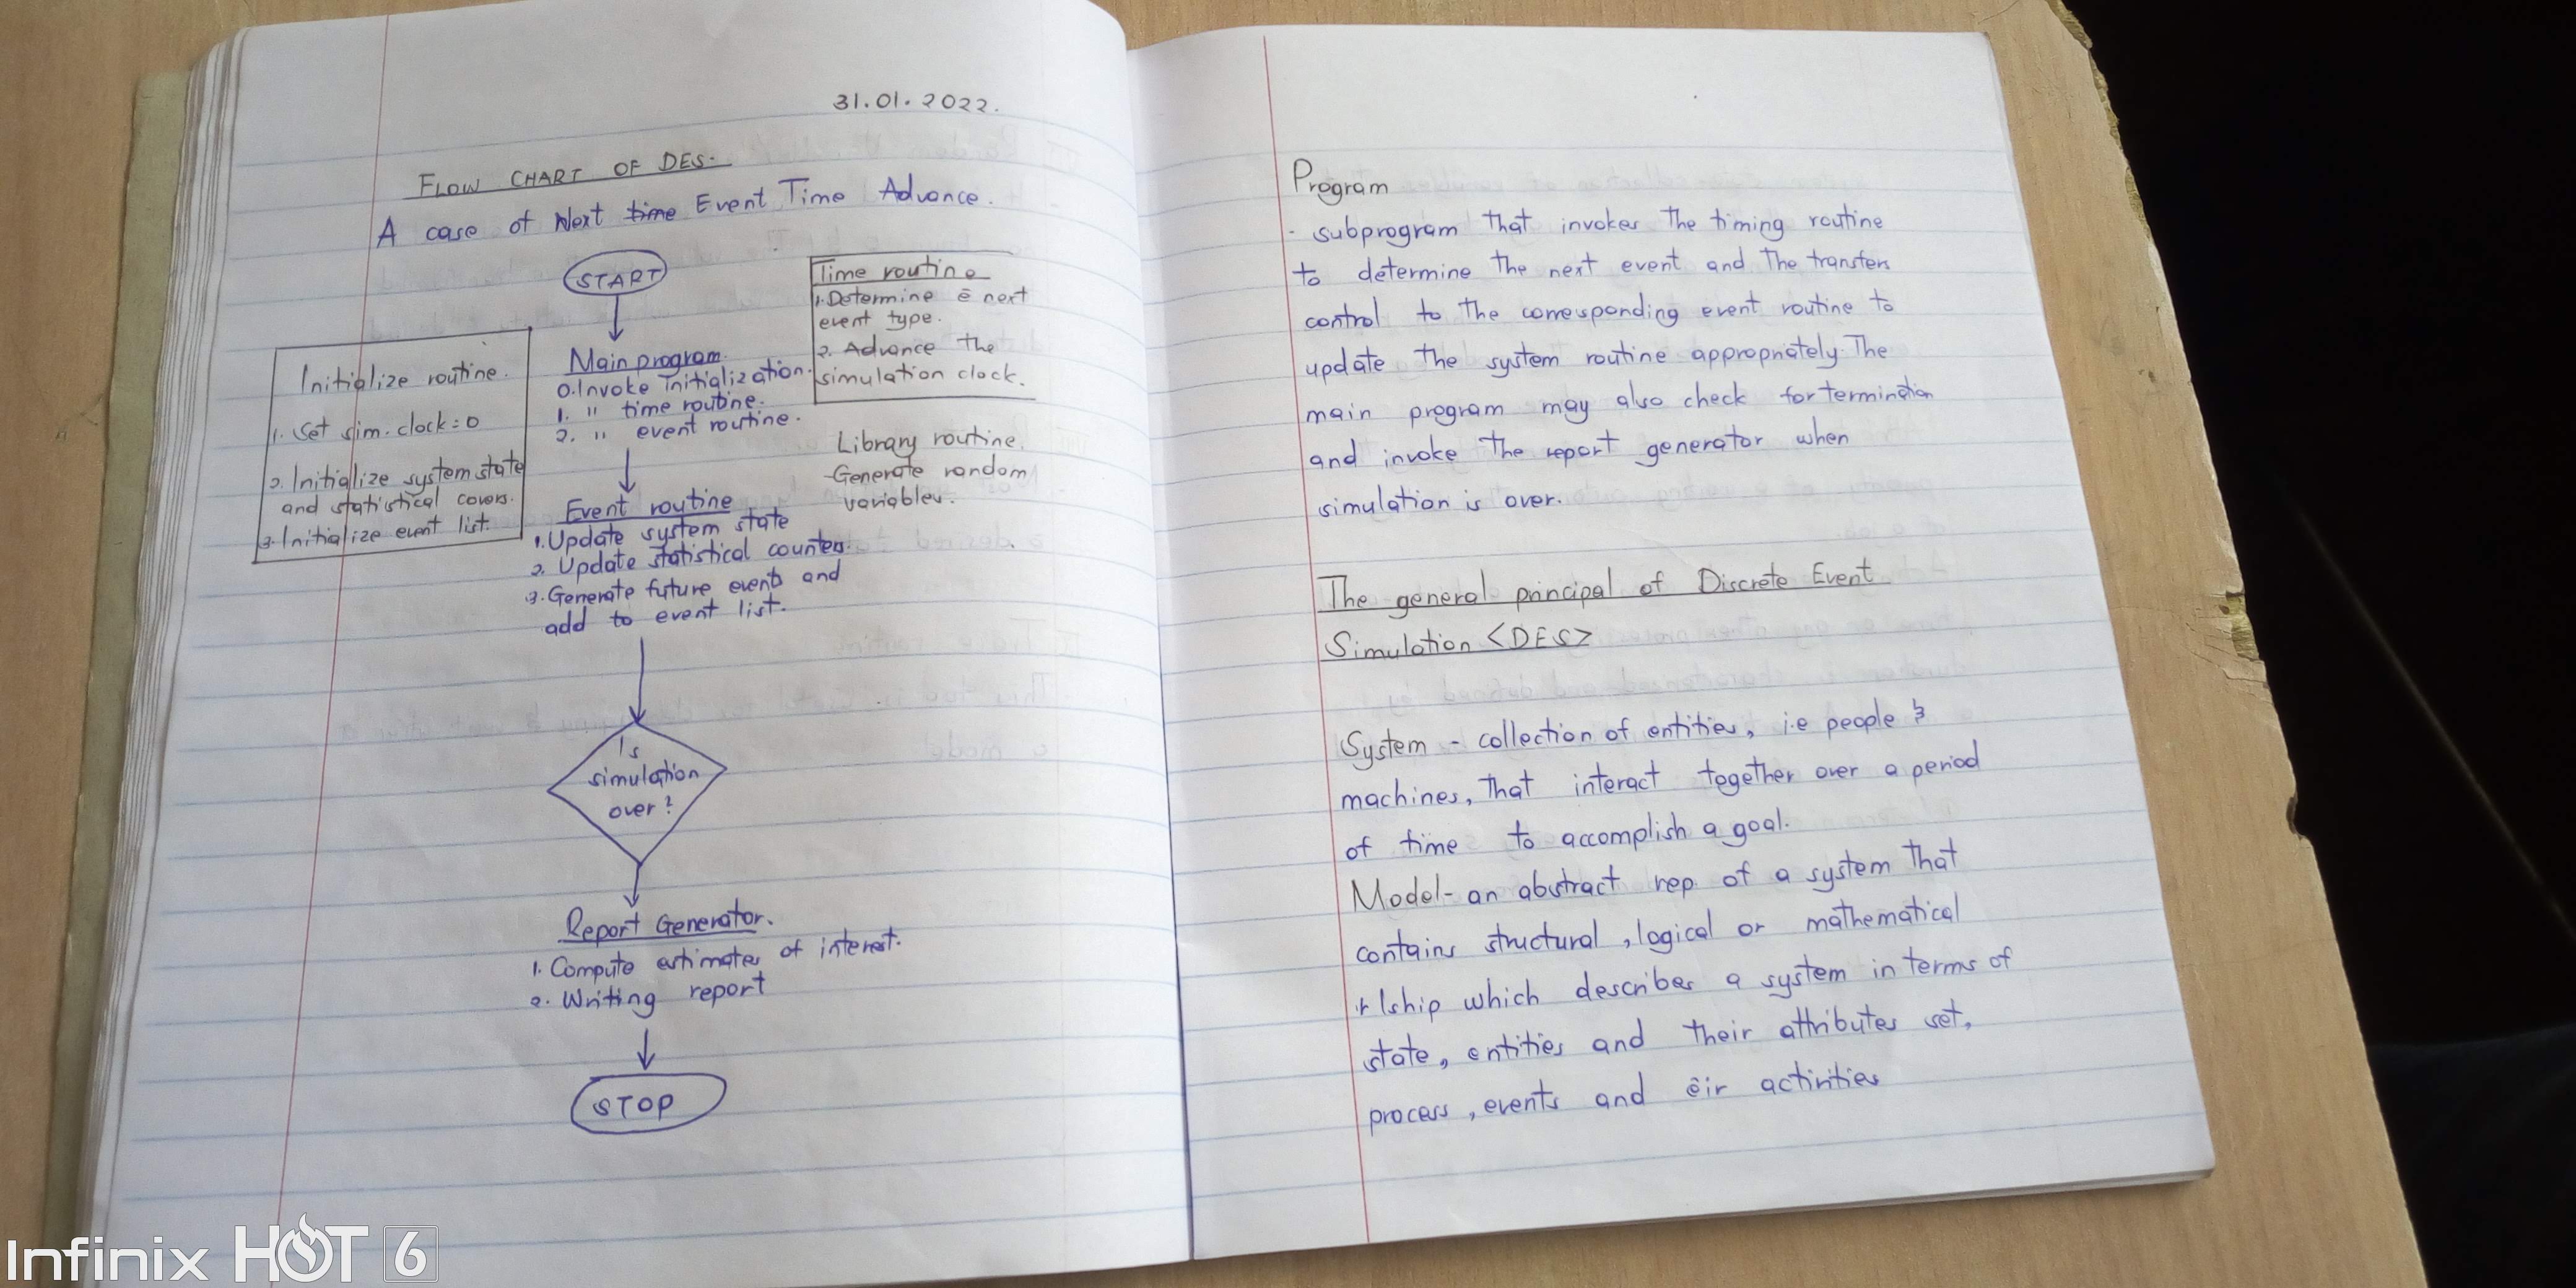 31.01.2022.
FLOW CHART OF DES.
A case of Next time Event Time Advance.
START
Time routine
1. Determine ē next
event type.
2. Advance the
simulation clock.
Initialize routine.
1. Set sim. clock = 0
2. Initialize system state
and statistical
3. Initialize event list.
Main program.
0. Invoke initialization.
1. " time routine.
2. " event routine.
Library routine.
- Generate random
variables.
Event routine
1. Update system state
2. Update statistical counters.
3. Generate future events and
add to event list.
Is
simulation
over?
Report Generator.
1. Compute estimates of interest.
2. Writing report
STOP
Program
- subprogram that invokes the timing routine
to determine the next event and the transfers
control to the corresponding event routine to
update the system routine appropriately. The
main program may also check for termination
and invoke the report generator when
simulation is over.
The general principal of Discrete Event
Simulation <DES>
System - collection of entities, i.e people &
machines, that interact together over a period
of time to accomplish a goal.
Model - an abstract rep. of a system that
contains structural, logical or mathematical
rlship which describes a system in terms of
state, entities and their attributes set,
process, events and ēir activities
Infinix HOT 6